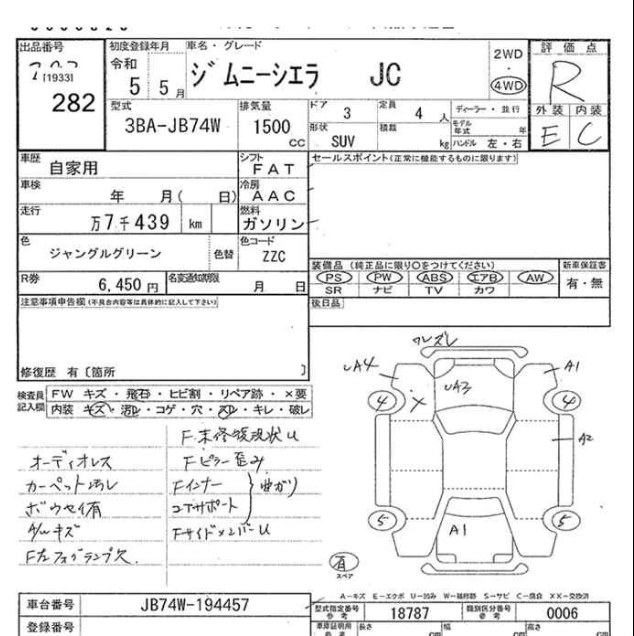 出品番号 初度登録年月 車名・グレード 評価点
[1933] 令和 ジムニーシエラ JC 2WD
・
282 5 5月 4WD R
型式 排気量 ドア 3 定員 4人 ディーラー・並行 外装 内装
3BA-JB74W 1500 cc 形状 SUV 積載 kg モデル年式 年 E C
ハンドル 左・右
車歴 自家用 シフト FAT セールスポイント(正常に機能するものに限ります)
車検 年 月( 日) 冷房 AAC
走行 万7千439 km 燃料 ガソリン
色 ジャングルグリーン 色替 色コード ZZC
装備品 (純正品に限り○をつけてください) 新車保証書
R券 6,450円 名変通知期限 月 日 PS PW ABS エアB AW 有・無
SR ナビ TV カワ
注意事項申告欄(不具合内容等は具体的に記入して下さい) 後日品
修復歴 有〔箇所 〕
検査員記入欄 FW キズ・飛石・ヒビ割・リペア跡・×要
内装 キズ・汚レ・コゲ・穴・スレ・キレ・破レ
ワレズレ
UA4 UA3 A1
4 × 4
A2
5 A1 5
有
スペア
F.未修復現状U
オーディオレス Fピラー歪み
カーペット汚レ Fインナー 曲がり
コアサポート
FサイドメンバーU
F左フォグランプ欠
A-キズ E-エクボ U-凹み W-補修跡 S-サビ C-腐食 XX-交換済
車台番号 JB74W-194457
型式指定番号 参考 18787 類別区分番号 参考 0006
登録番号 車庫証明用 参考 長さ cm 幅 cm 高さ cm